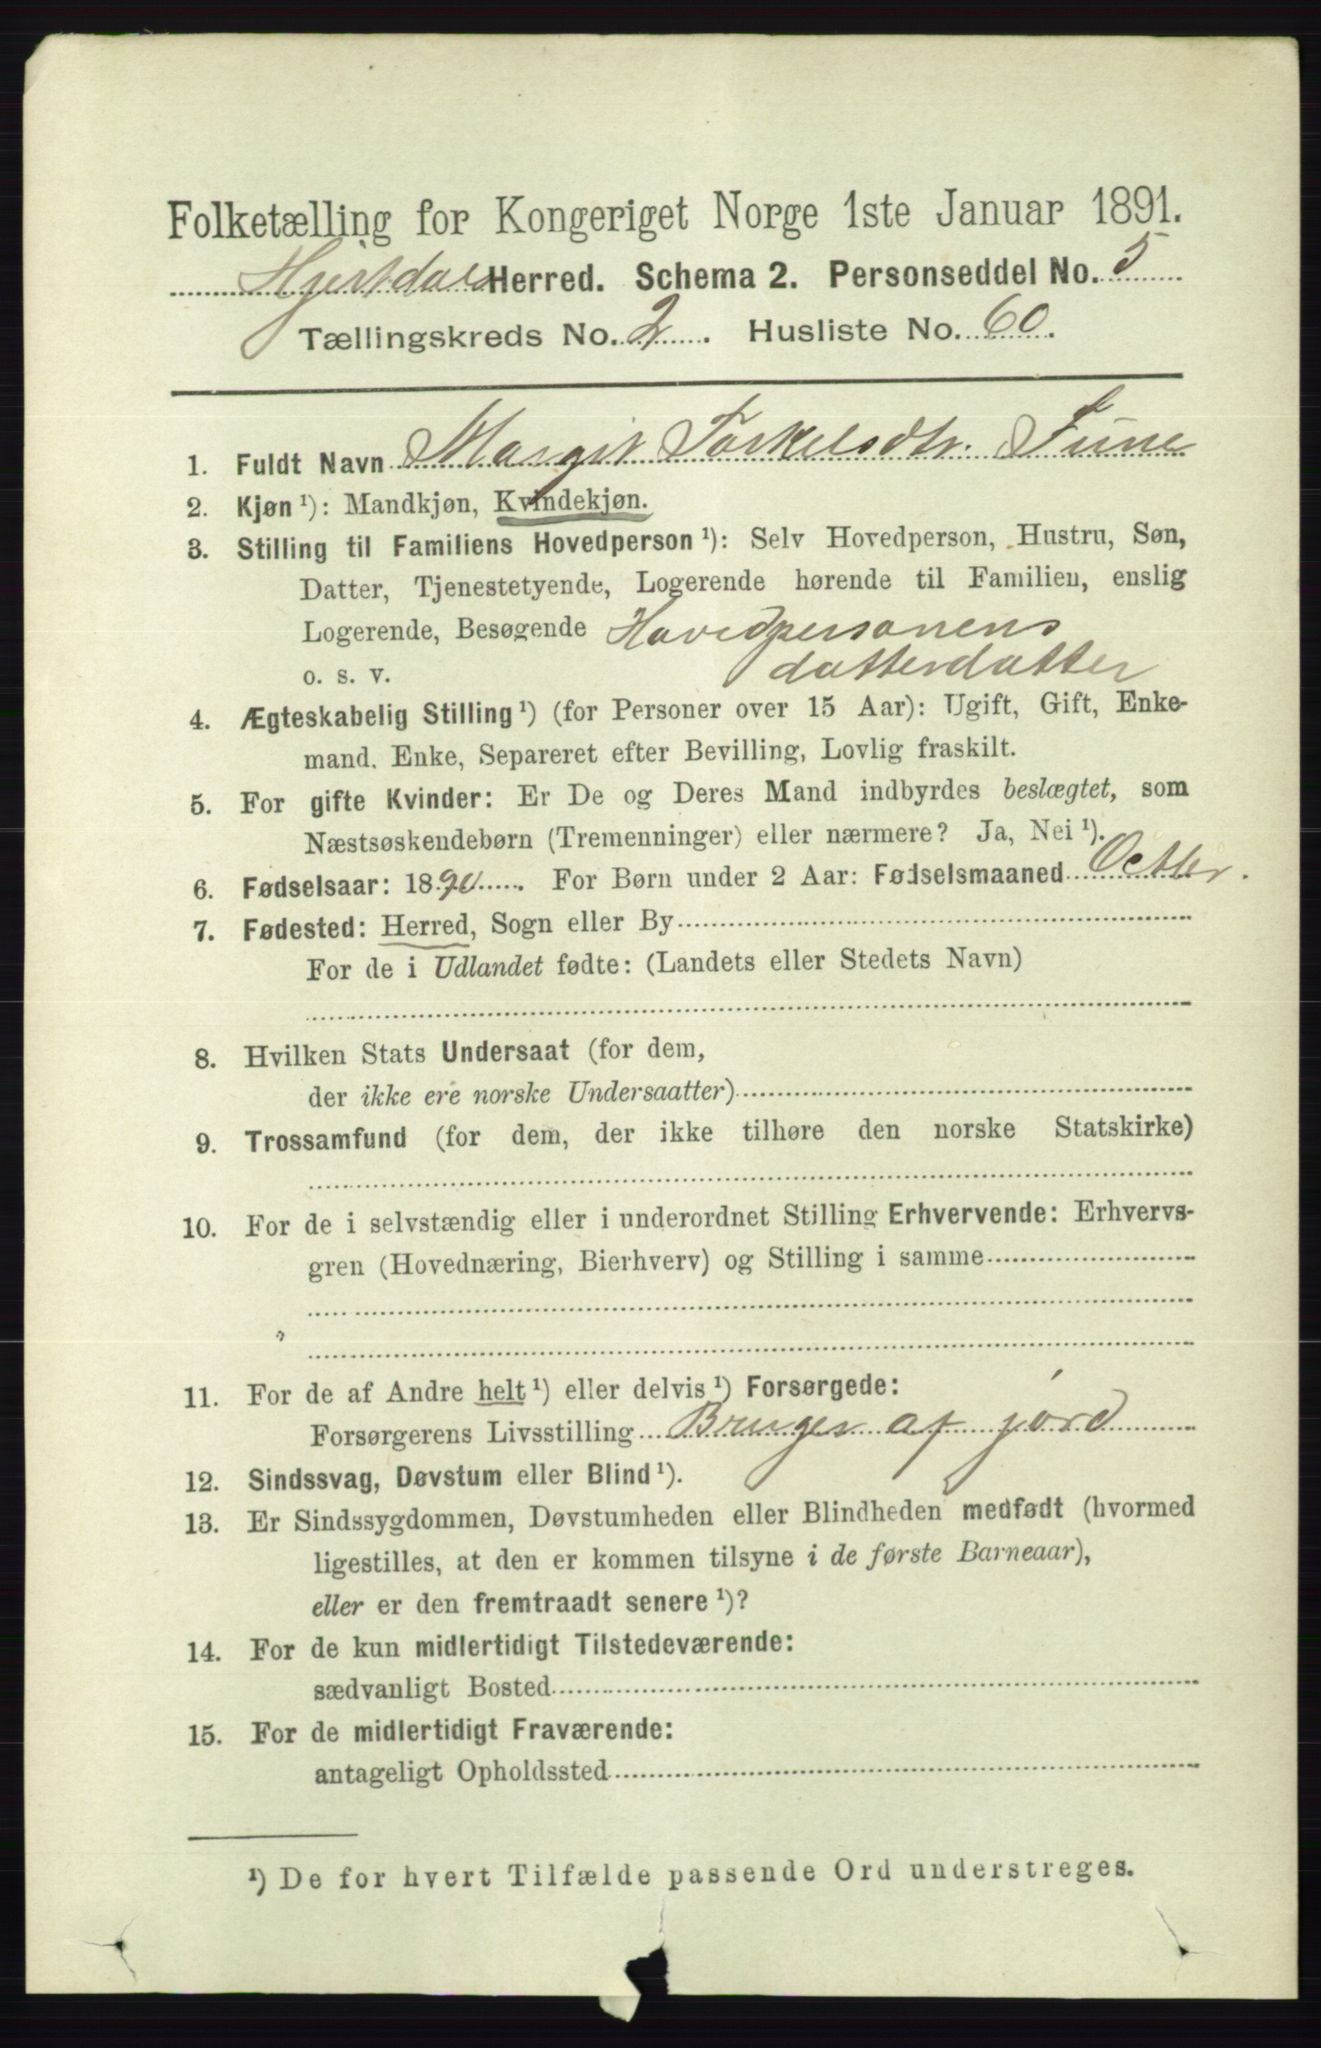 Folketælling for Kongeriget Norge 1ste Januar 1891.
Hjertdals Herred. Schema 2. Personseddel No. 5
Tællingskreds No. 2. Husliste No. 60.
1. Fuldt Navn Margit Torkelsdtr. Tune
2. Kjøn ¹): Mandkjøn, Kvindekjøn.
3. Stilling til Familiens Hovedperson ¹): Selv Hovedperson, Hustru, Søn,
Datter, Tjenestetyende, Logerende hørende til Familien, enslig
Logerende, Besøgende Hovedpersonens
o. s. v. datterdatter
4. Ægteskabelig Stilling ¹) (for Personer over 15 Aar): Ugift, Gift, Enke-
mand, Enke, Separeret efter Bevilling, Lovlig fraskilt.
5. For gifte Kvinder: Er De og Deres Mand indbyrdes beslægtet, som
Næstsøskendebørn (Tremenninger) eller nærmere? Ja, Nei ¹).
6. Fødselsaar: 1890. For Børn under 2 Aar: Fødselsmaaned Octbr.
7. Fødested: Herred, Sogn eller By
For de i Udlandet fødte: (Landets eller Stedets Navn)
8. Hvilken Stats Undersaat (for dem,
der ikke ere norske Undersaatter)
9. Trossamfund (for dem, der ikke tilhøre den norske Statskirke)
10. For de i selvstændig eller i underordnet Stilling Erhvervende: Erhvervs-
gren (Hovednæring, Bierhverv) og Stilling i samme
11. For de af Andre helt ¹) eller delvis ¹) Forsørgede:
Forsørgerens Livsstilling Bruger af jord
12. Sindssvag, Døvstum eller Blind ¹).
13. Er Sindssygdommen, Døvstumheden eller Blindheden medfødt (hvormed
ligestilles, at den er kommen tilsyne i de første Barneaar),
eller er den fremtraadt senere ¹)?
14. For de kun midlertidigt Tilstedeværende:
sædvanligt Bosted
15. For de midlertidigt Fraværende:
antageligt Opholdssted
¹) De for hvert Tilfælde passende Ord understreges.